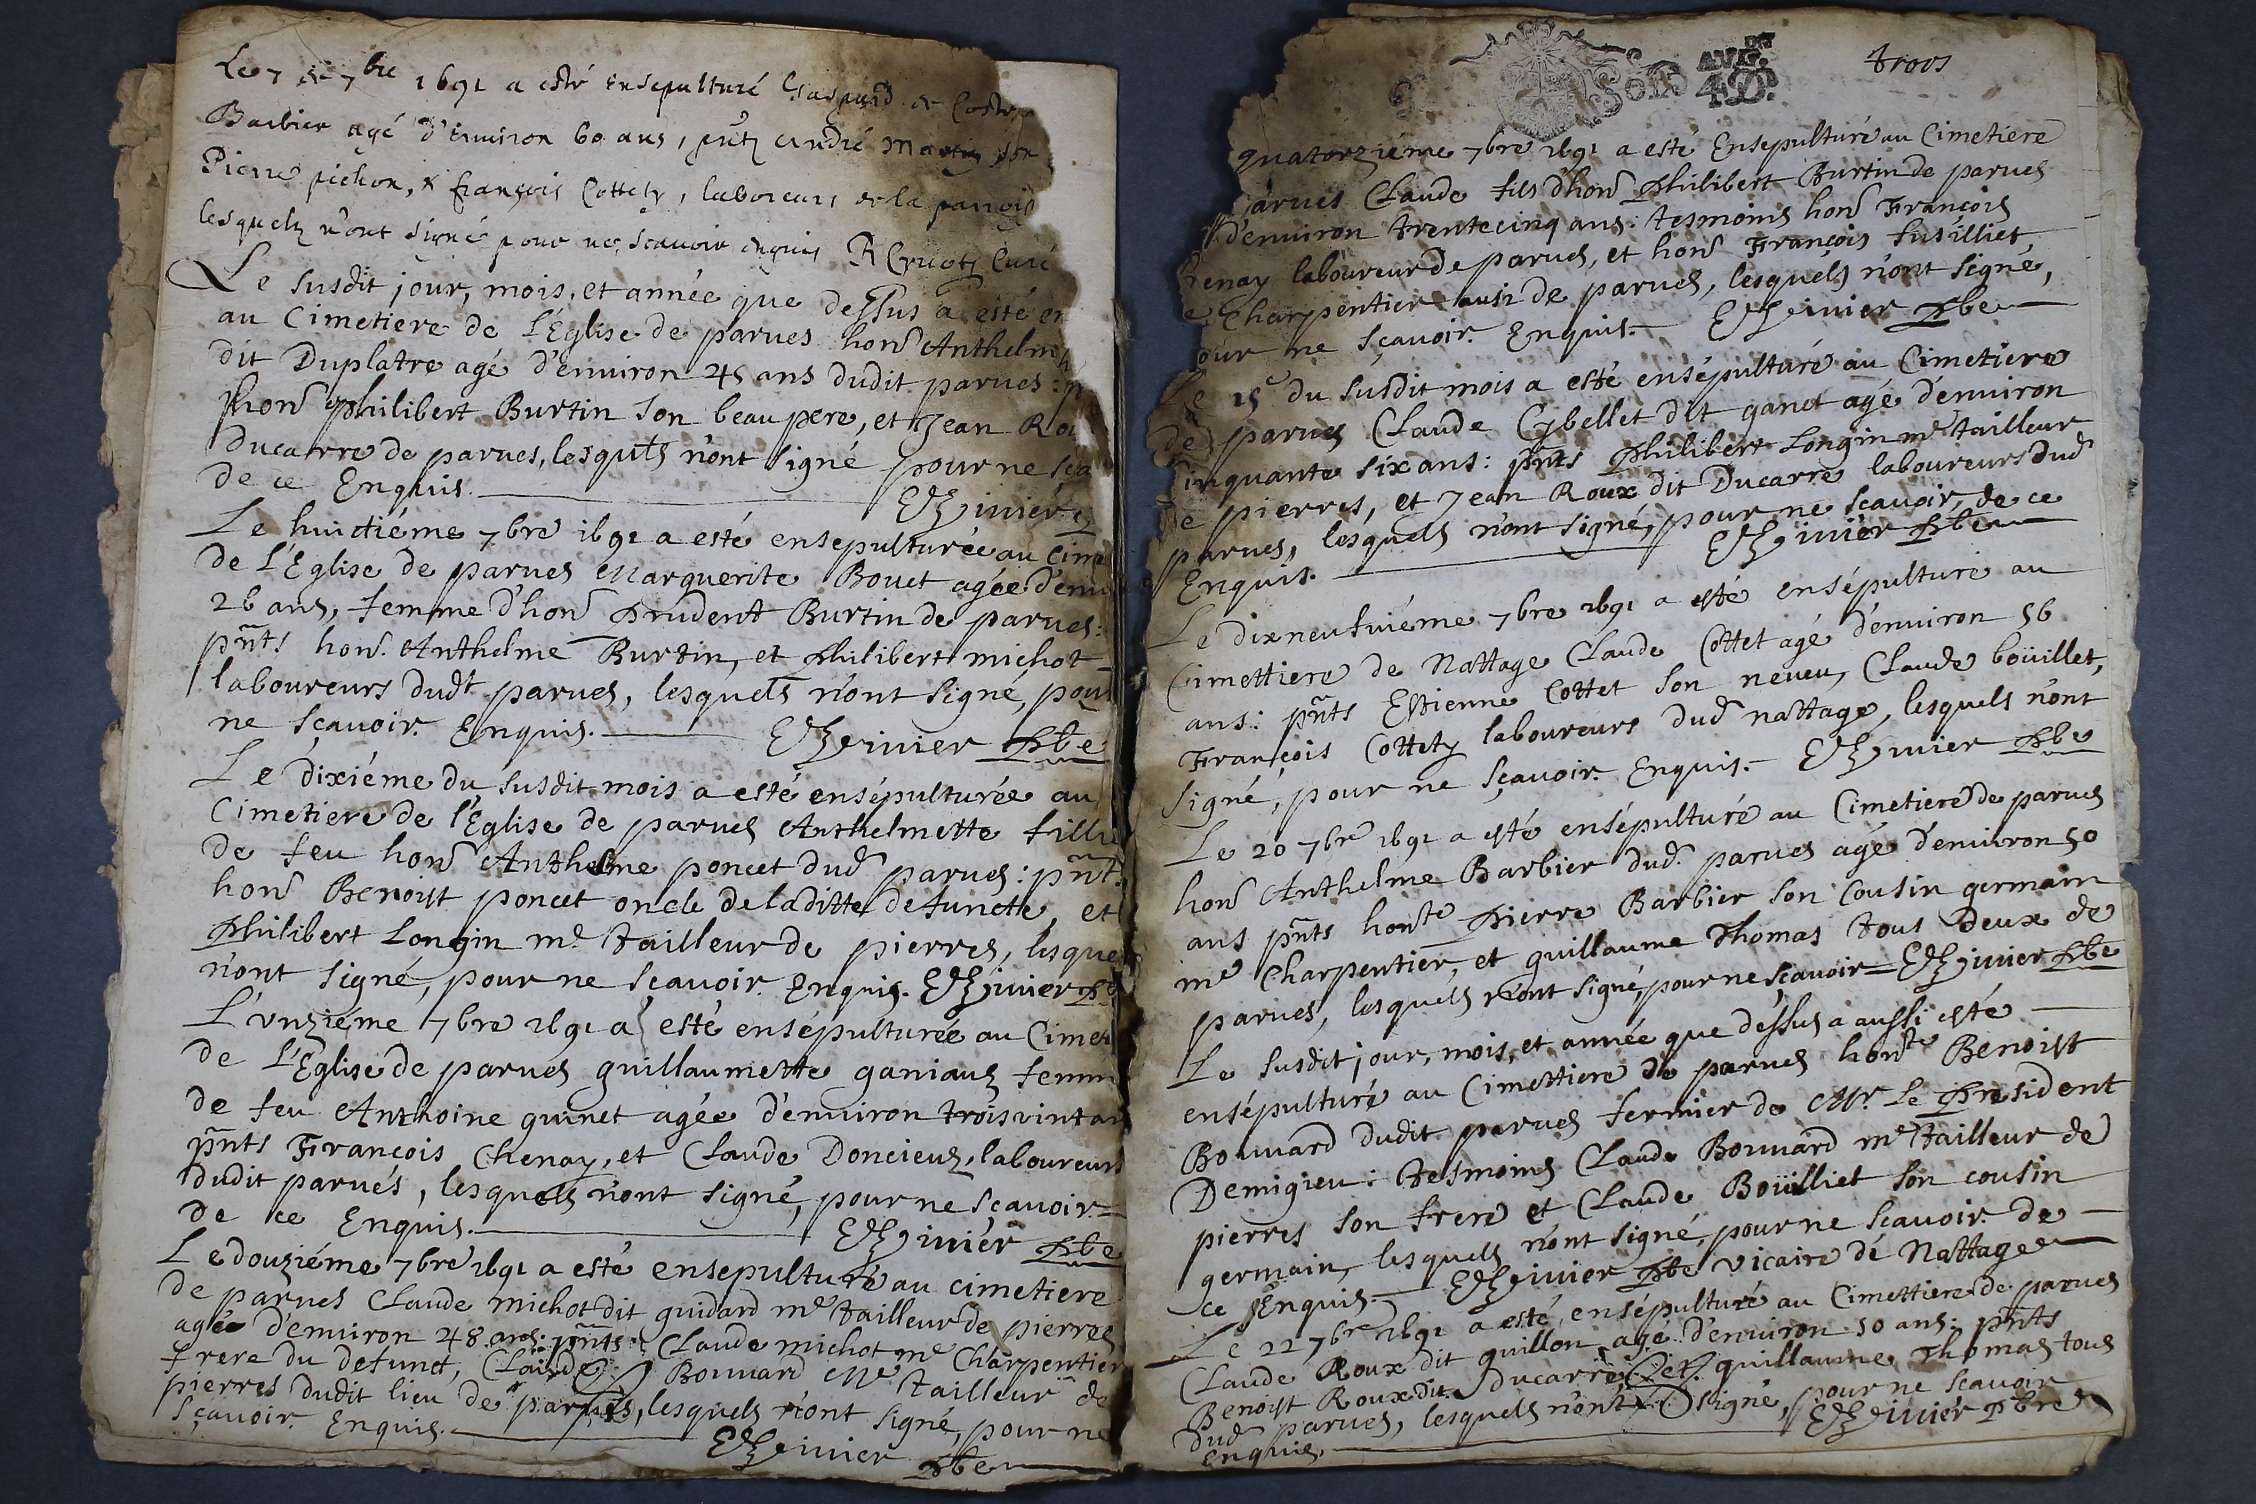 Le 7 de 7bre 1691 a esté ensepulturé Gaspard de Coste
Barbier agé d'environ 60 ans, pnts André Martin
Pierre pichon, & françois Cottety, laboreurs de la parroiss
lesquels n'ont signé pour ne sçavoir enquis Curé
Le susdit jour, mois, et année que dessus a esté en
au Cimetiere de l'Eglise de parves hon. Anthelme
dit Duplatre agé d'environ 45 ans dudit parves:
hon. philibert Burtin son beau pere, et Jean Rou
Ducarre de parves, lesquels n'ont signé pour ne sça
de ce Enquis.
Le huictiéme 7bre 1691 a esté ensepulturée au Cime
de l'Eglise de parves Marguerite Bouet agée d'envi
26 ans, femme d'hon. Prudent Burtin de parves:
pnts hon. Anthelme Burtin, et Philibert michot
laboureurs dudt parves, lesquels n'ont signé, pour
ne sçavoir. Enquis. Pbre
Le dixiéme du susdit mois a esté ensépulturée au
Cimetiere de l'Eglise de parves Anthelmette fille
de feu hon. Anthelme poncet dud. parves: pnts
hon. Benoist poncet oncle de laditte defuncte, et
Philibert Longin me tailleur de pierres, lesque
n'ont signé, pour ne sçavoir. Enquis.
L'vnziéme 7bre 1691 a esté ensépulturée au Cimet
de l'Eglise de parves guillaumette ganiauz femm
de feu Anthoine quinet agée d'environ trois vint an
pnts François Chenay, et Claude Doncieuz, laboureurs
dudit parvés, lesquels n'ont signé, pour ne sçavoir=
de ce Enquis. Pbre
Le douziéme 7bre 1691 a esté ensepulturé au cimetiere
de parves Claude michot dit guidard me tailleur de pierres
agée d'environ 48 ans: pnts Claude michot me Charpentier
frere du defunct, Claude Bonnard Me tailleur de
pierres dudit lieu de parves, lesquels n'ont signé, pour ne
sçavoir. Enquis. Pbre
AVG.
trois
quatorziéme 7bre 1691 a esté Ensepulturé au Cimetiere
arves Claude fils d'hon. Philibert Burtin de parves
d'environ trente cinq ans: tesmoins hon. François
henay laboureur de parves, et hon. François fusilliet
Charpentier aussi de parves, lesquels n'ont signé,
our ne sçavoir. Enquis. Pbre
Le 15e du susdit mois a esté ensépulturé au Cimetiere
de parves Claude Cybellet dit ganet agé d'environ
Cinquante six ans: pnts Philibert Longin me tailleur
de pierres, et Jean Roux dit Ducarre laboureurs dud.
parves, lesquels n'ont signé, pour ne sçavoir, de ce
Enquis. Pbre
Le dixneufviéme 7bre 1691 a esté ensépulturé au
Cimettiere de Nattage Claude Cottet agé d'environ 56
ans: pnts Estienne Cottet son neveu, Claude boüillet,
François Cottety laboureurs dud. nattage, lesquels n'ont
signé, pour ne sçavoir. Enquis. Pbre
Le 20 7bre 1691 a esté ensépulturé au Cimetiere de parves
hon. Anthelme Barbier dud. parves agé d'environ 50
ans pnts honte Pierre Barbier son Cousin germain
me Charpentier, et guillaume Thomas tous deux de
parves, lesquels n'ont signé, pour ne sçavoir= Pbre
Le susdit jour, mois, et année que déssus a aussi esté
ensépulturé au Cimettiere de parves honte Benoist
Bonnard dudit parves fermier de Mr. Le President
Demigieu: tesmoins Claude Bonnard me tailleur de
pierres son frere et Claude Boüilliet son cousin
germain, lesquels n'ont signé, pour ne sçavoir. de
ce Enquis. Pbre vicaire de Nattage
Le 22 7bre 1691 a esté ensépulturé au Cimettiere de parves
Claude Roux dit guillon agé d'environ 50 ans: pnts
Benoist Roux dit Ducarre et guillaume Thomas tous
dud. parves, lesquels n'ont signé, pour ne sçavoir
Enquis. Pbre